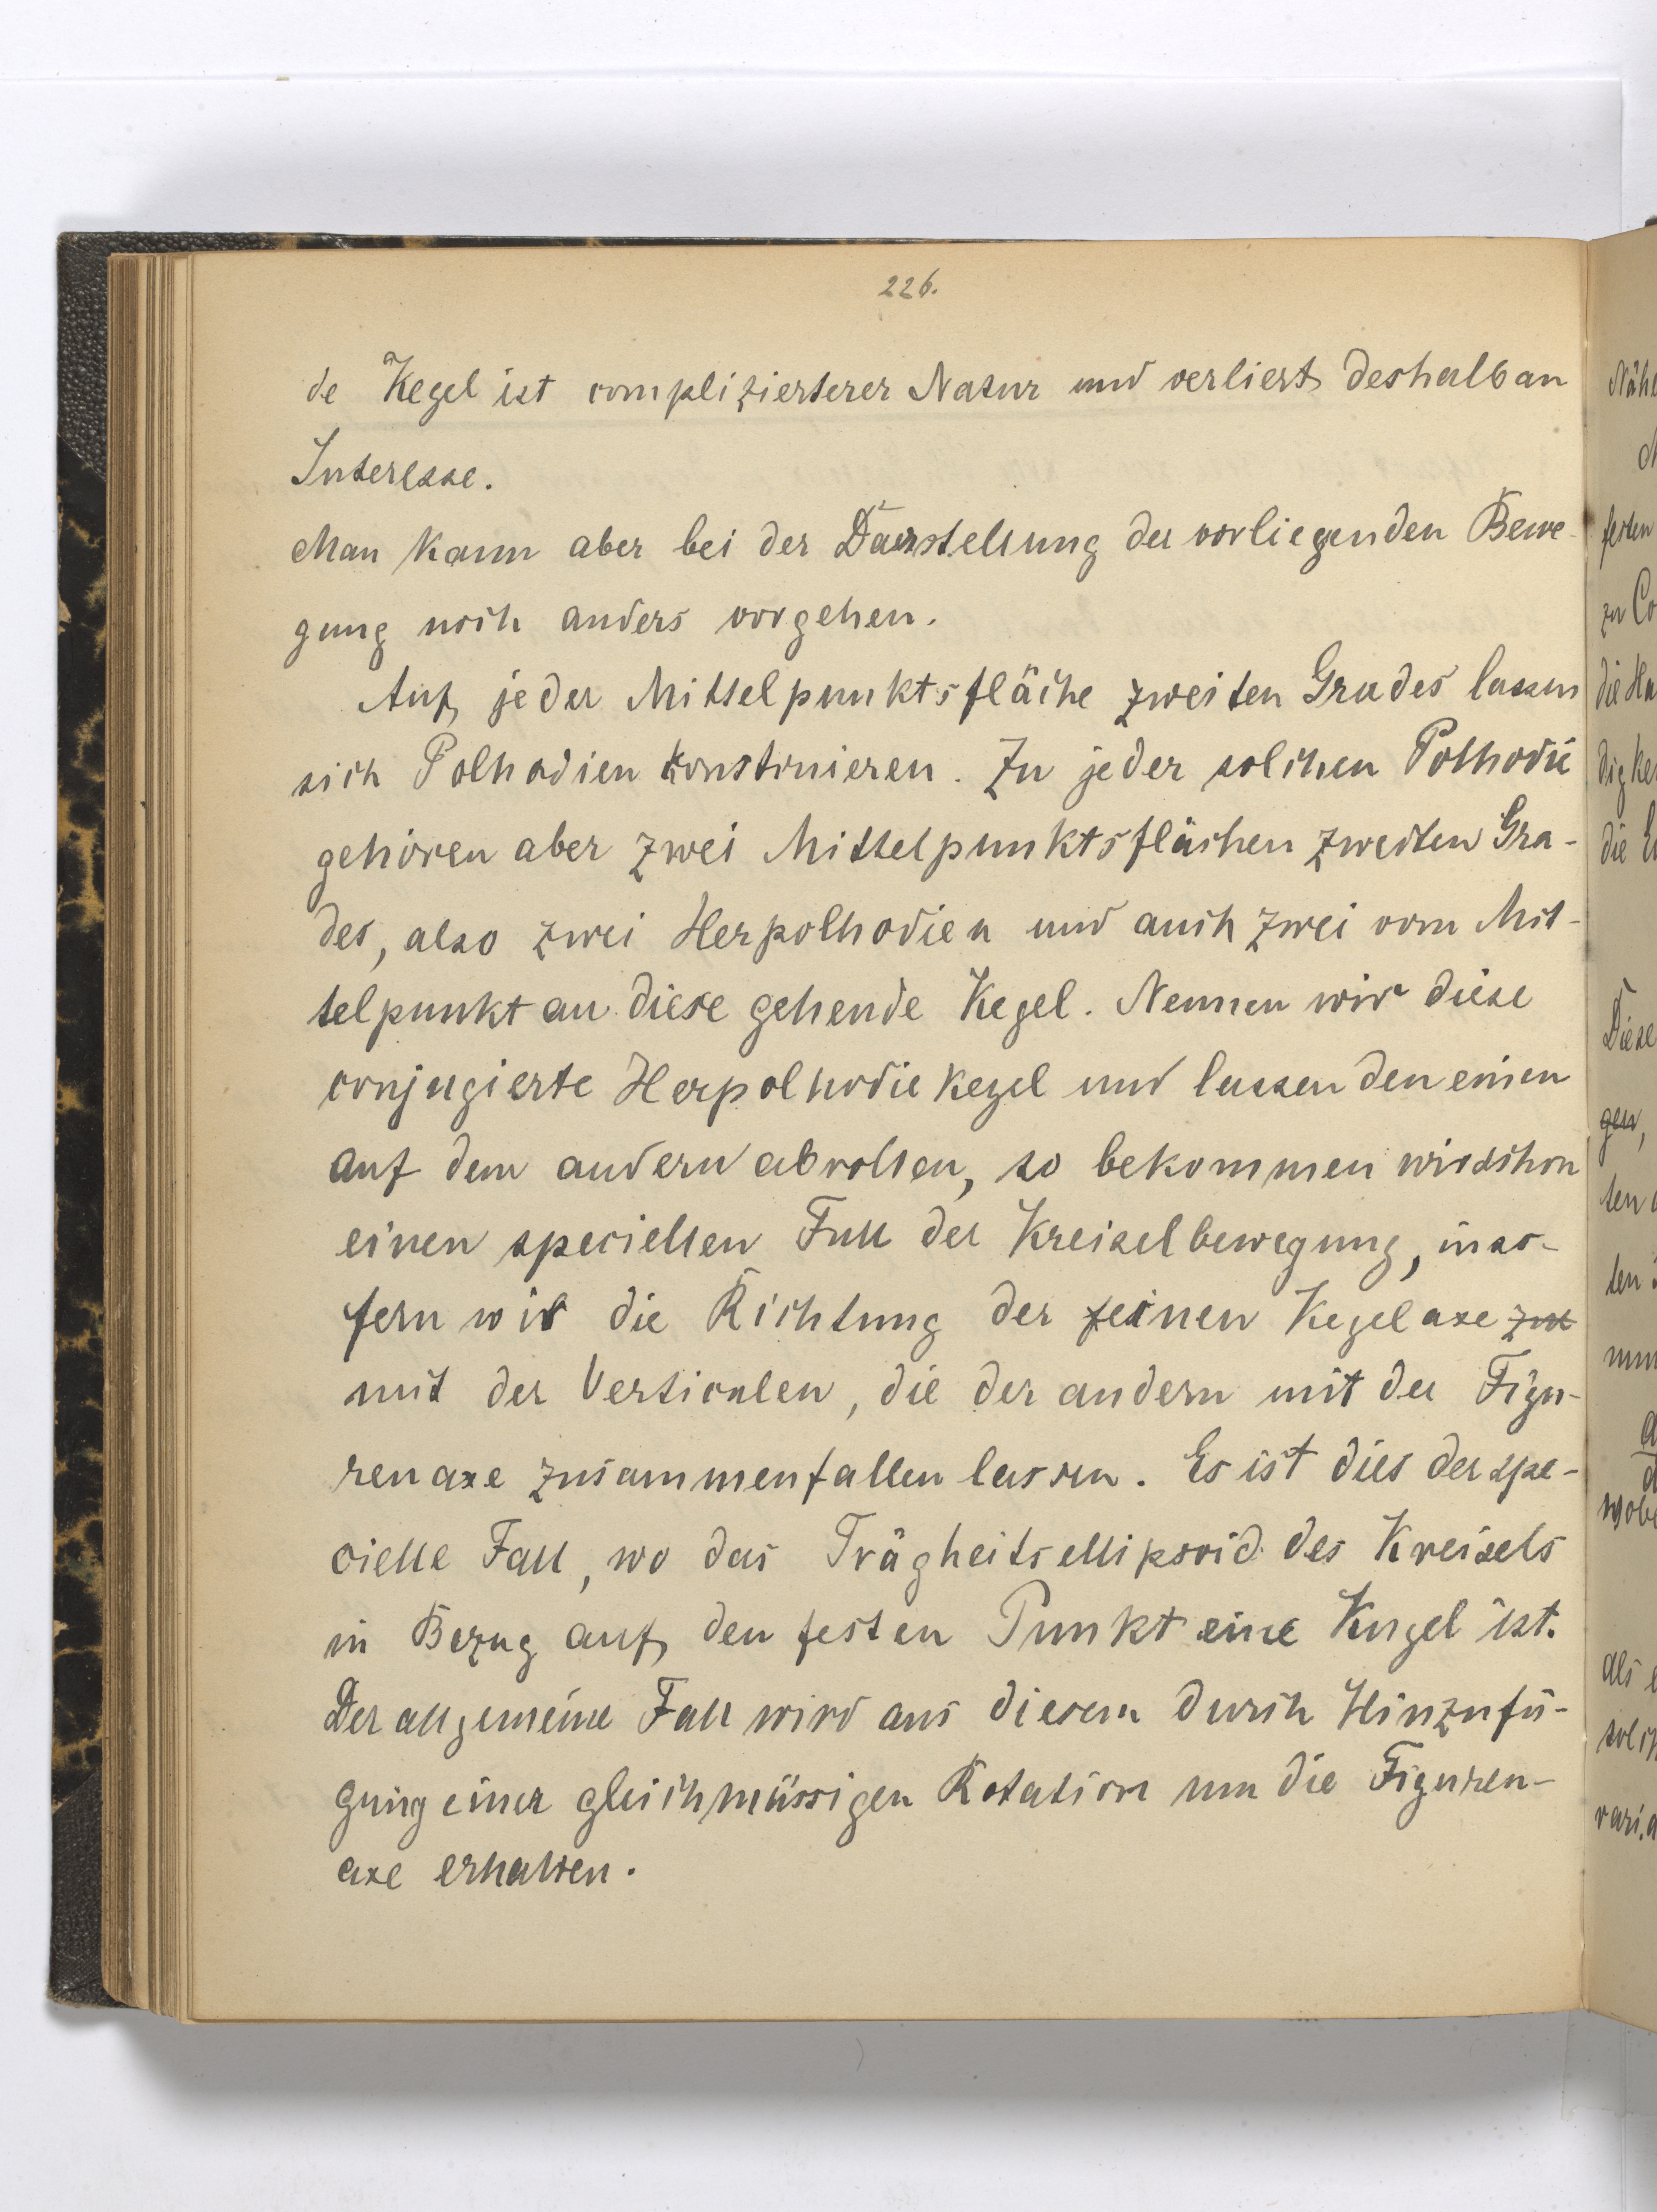 226.
de Kegel ist complizierterer Natur und verliert deshalb an
Interesse.
Man kann aber bei der Darstellung der vorliegenden Bewe-
gung noch anders vorgehen.
Auf jeder Mittelpunktsfläche zweiten Grades lassen
sich Polhodien konstruieren. Zu jeder solchen Polhodie
gehören aber zwei Mittelpunktsflächen zweiten Gra-
des, also zwei Herpolhodien und auch zwei vom Mit-
telpunkt an diese gehende Kegel. Nennen wir diese
conjugierte Herpolhodiekegel und lassen den einen
auf dem andern abrollen, so bekommen wir schon
einen speciellen Fall der Kreiselbewegung, inso-
fern wir die Richtung der einen Kegelaxe zu
mit der Verticalen, die der andern mit der Figu-
renaxe zusammenfallen lassen. Es ist dies der spe-
cielle Fall, wo das Trägheitsellipsoid des Kreisels
in Bezug auf den festen Punkt eine Kugel ist.
Der allgemeine Fall wird aus diesem durch Hinzufü-
gung einer gleichmässigen Rotation um die Figuren-
axe erhalten.
Nähe
festen
zu Co
die Ha
digke
die E
Diese
gen,
ten
ten
wobe
als e
solch
vari.a